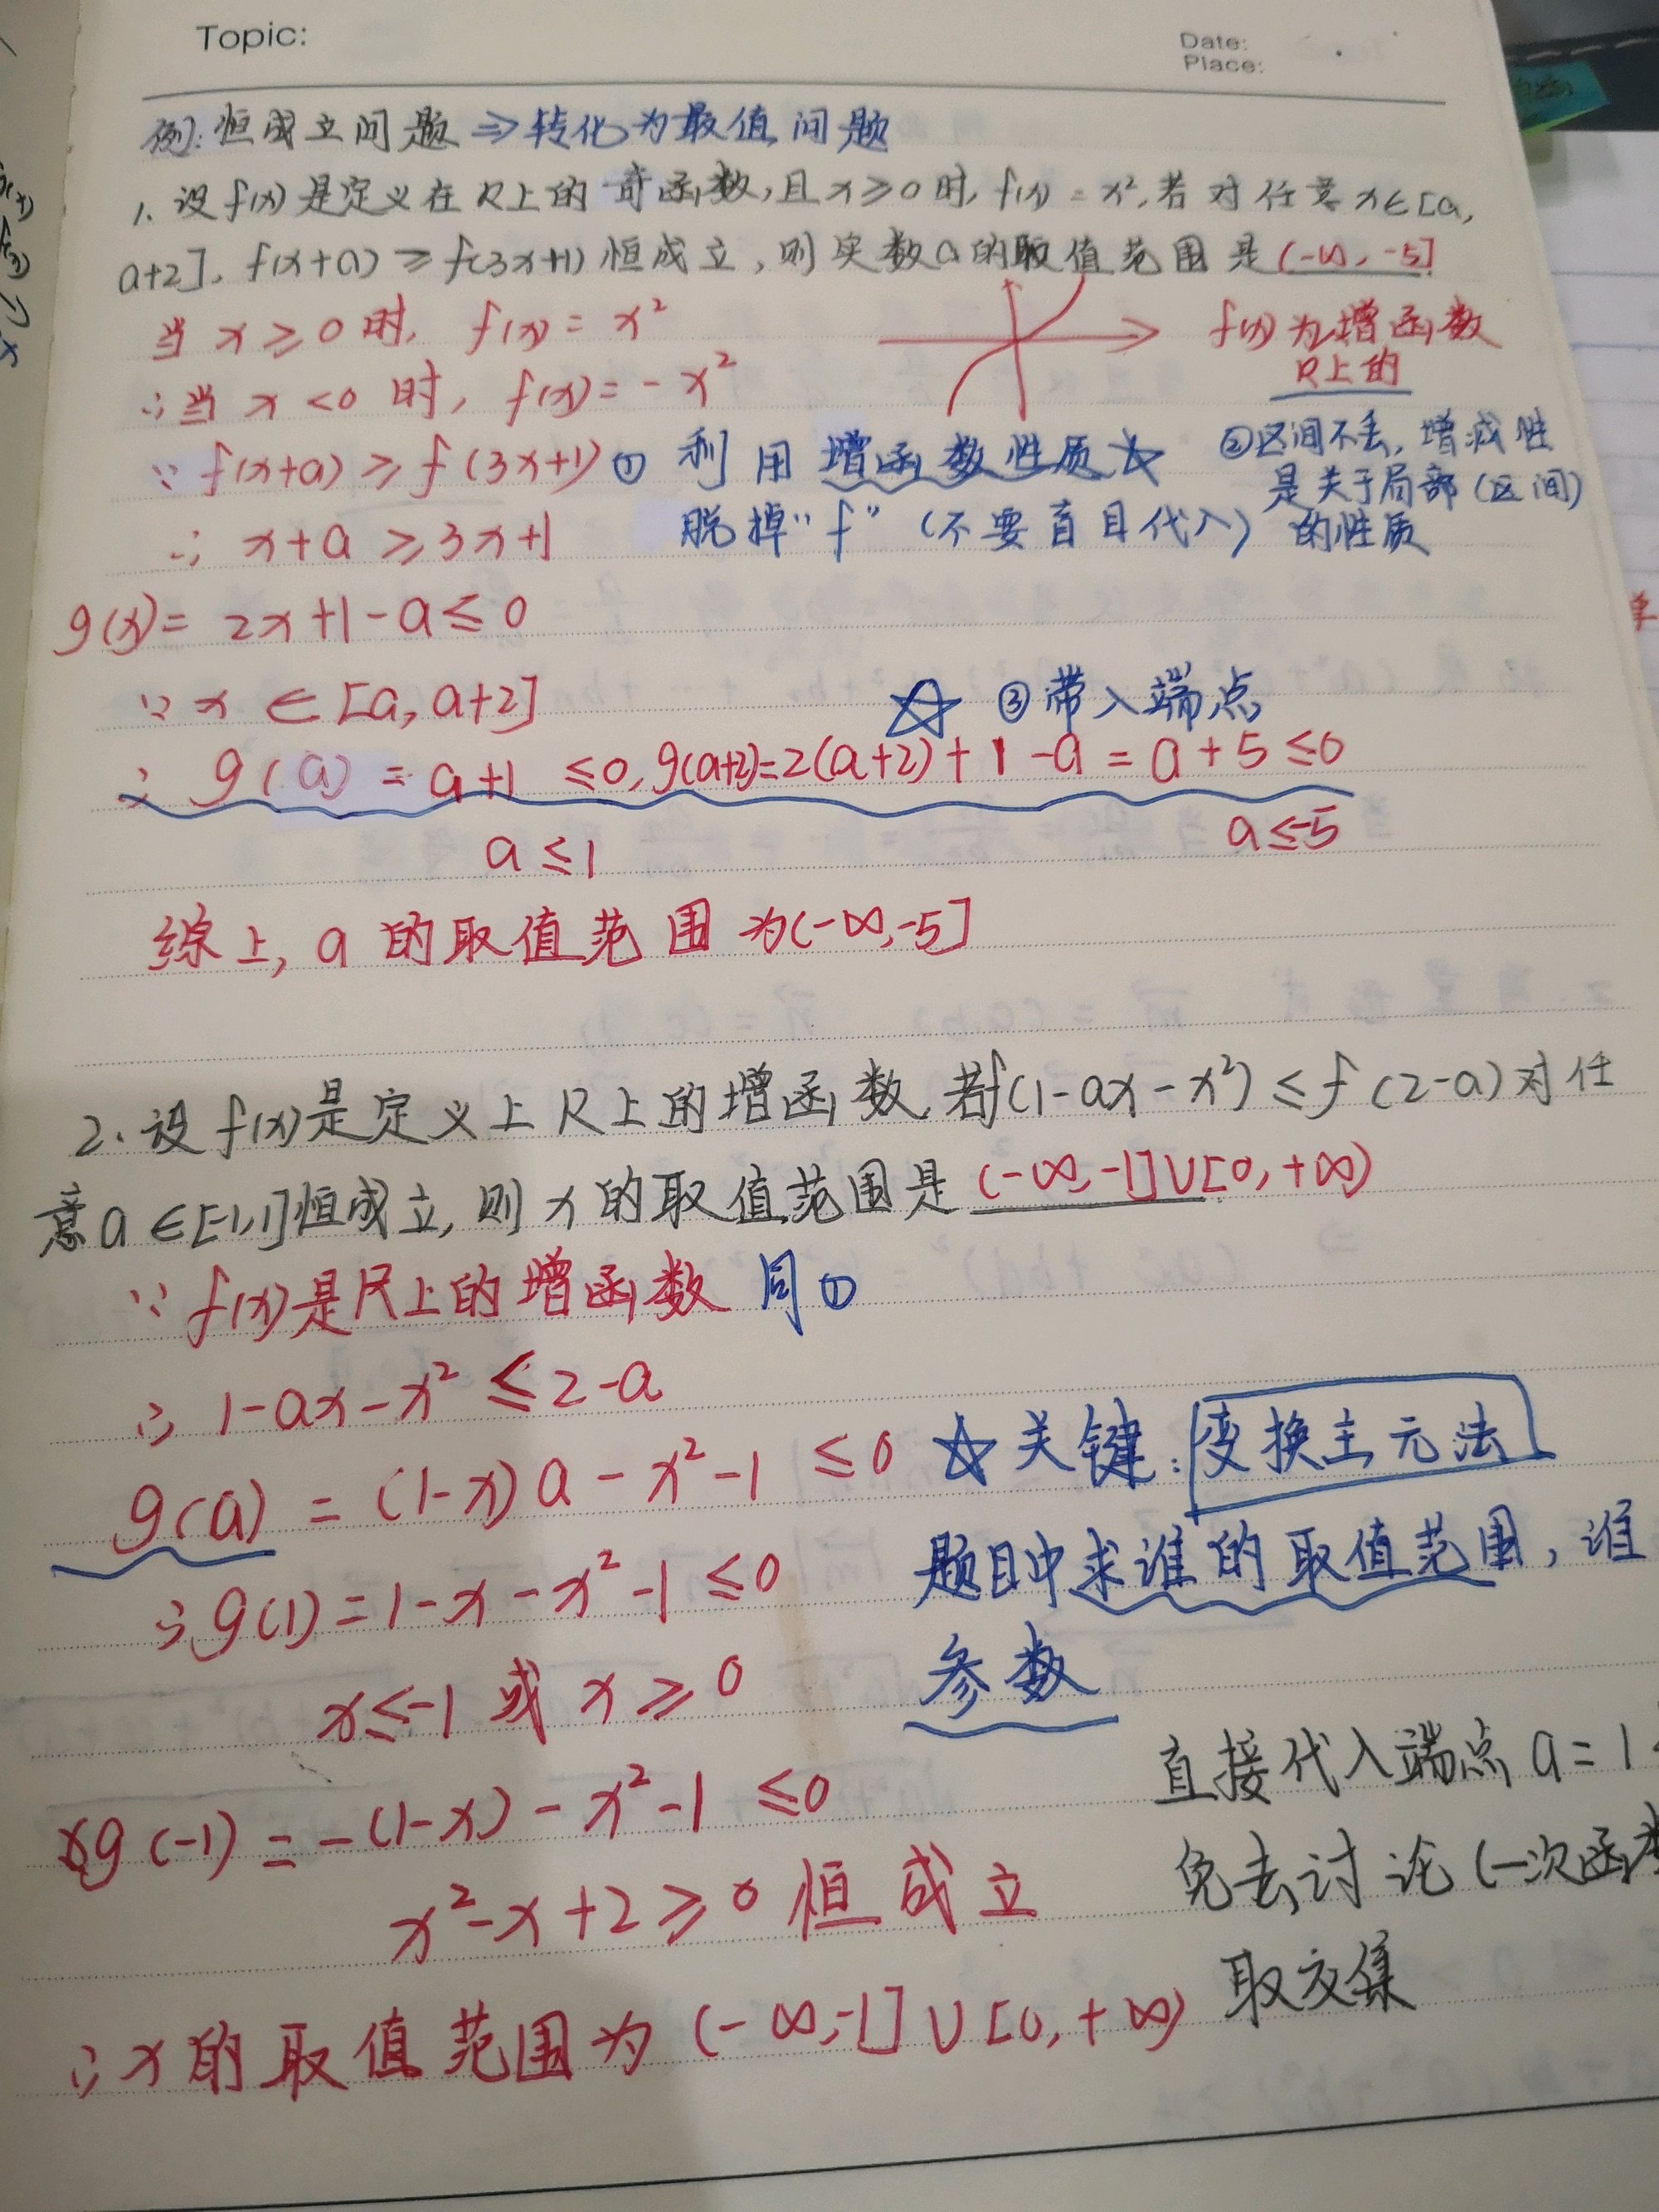 Topic:
Date:
Place:
例:恒成立问题⇒转化为最值问题
1. 设f(x)是定义在R上的奇函数,且x≥0时,f(x)=x²,若对任意x∈[a,
a+2],f(x+a)≥f(3x+1)恒成立,则实数a的取值范围是(-∞,-5]
当x≥0时, f(x)=x²
f(x)为增函数
R上的
∴当x<0时, f(x)=-x²
∵f(x+a)≥f(3x+1)① 利用增函数性质☆
②区间不丢,增减性
是关于局部(区间)
的性质
∴ x+a≥3x+1
脱掉"f"(不要盲目代入)
g(x)= 2x+1-a≤0
∵ x∈[a,a+2]
☆ ③带入端点
∴ g(a)=a+1 ≤0, g(a+2)=2(a+2)+1-a=a+5≤0
a≤1
a≤-5
综上, a的取值范围为(-∞,-5]
2. 设f(x)是定义上R上的增函数,若f(1-ax-x²)≤f(2-a)对任
意a∈[-1,1]恒成立,则x的取值范围是(-∞,-1]∪[0,+∞)
∵ f(x)是R上的增函数 同①
∴ 1-ax-x²≤2-a
g(a)=(1-x)a-x²-1 ≤0 ☆关键:变换主元法
题目中求谁的取值范围,谁
参数
∴g(1)=1-x-x²-1≤0
x≤-1或x≥0
直接代入端点a=1
g(-1)=-(1-x)-x²-1≤0
免去讨论(一次函数
x²-x+2≥0恒成立
取交集
∴x的取值范围为(-∞,-1]∪[0,+∞)